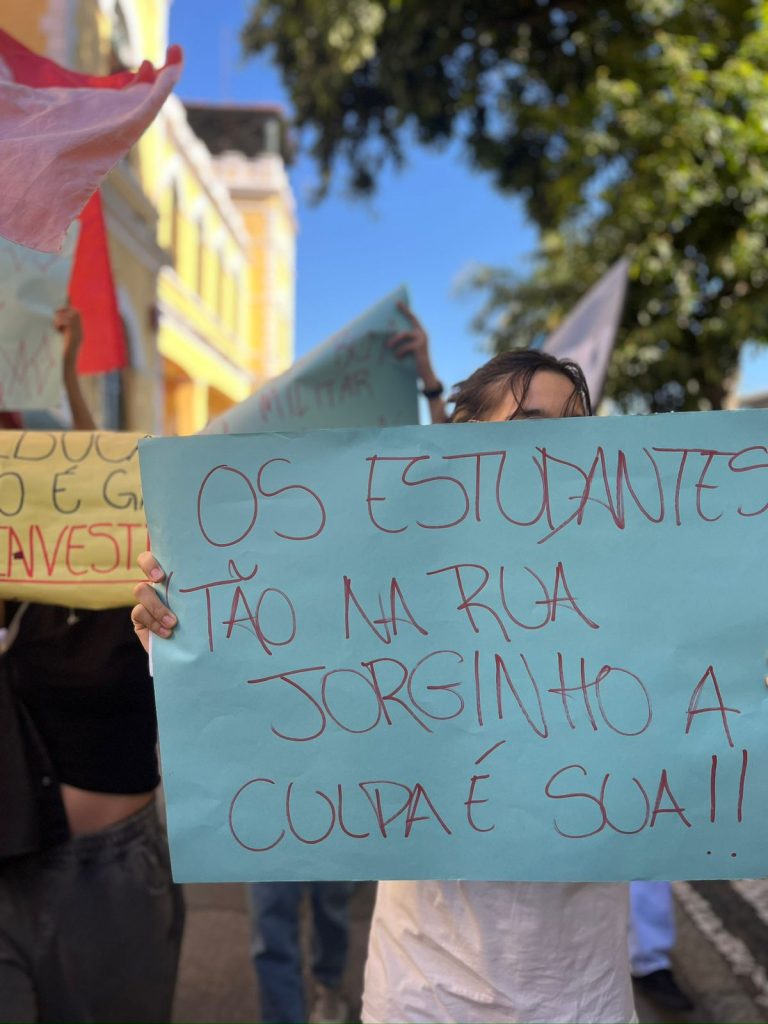 MILITAR
EDUCA
O É GA
INVESTI
OS ESTUDANTES
TÃO NA RUA
JORGINHO A
CULPA É SUA!!